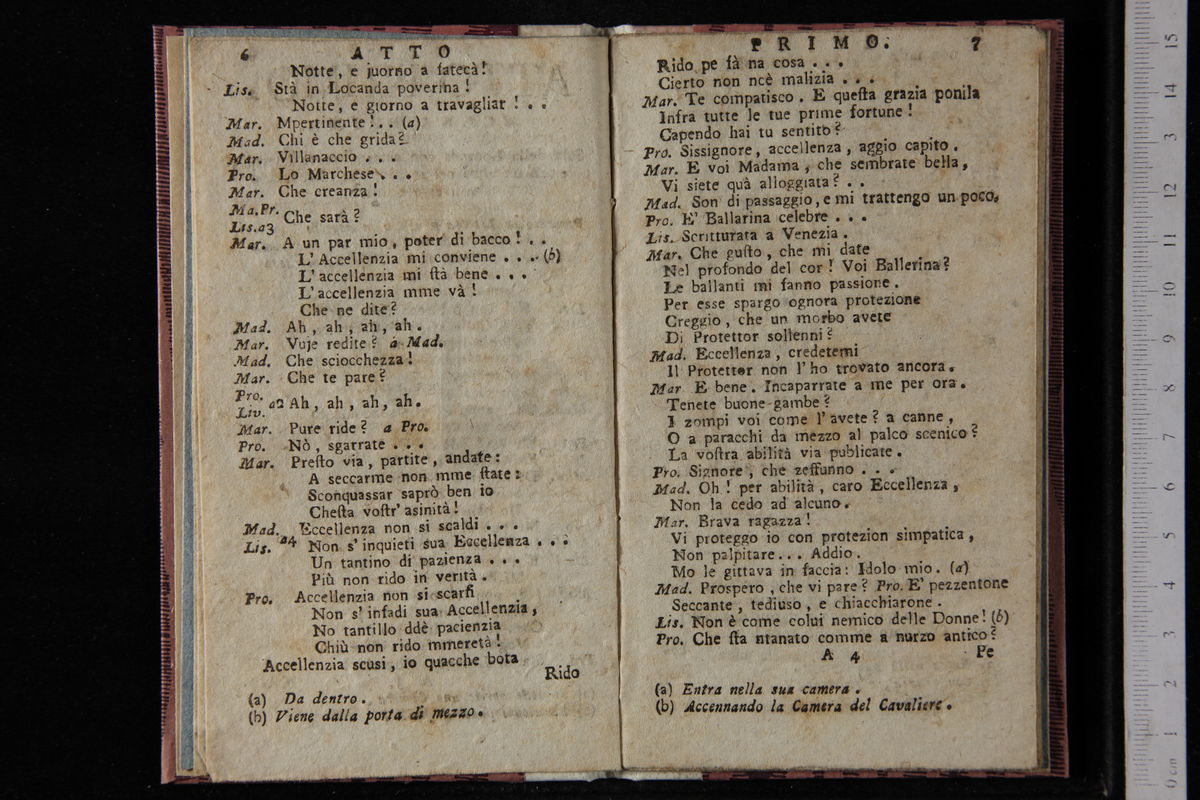 6 ATTO
Notte, e juorno a fatecà!
Lis. Stà in Locanda poverina!
Notte, e giorno a travagliar! . .
Mar. Mpertinente!.. (a)
Mad. Chi è che grida?
Mar. Villanaccio . . .
Pro. Lo Marchese . . .
Mar. Che creanza!
Ma.Pr. Lis.a3 Che sarà?
Mar. A un par mio, poter di bacco! . .
L' Accellenzia mi conviene . . . (b)
L' accellenzia mi stà bene . . .
L' accellenzia mme và!
Che ne dite?
Mad. Ah, ah, ah, ah.
Mar. Vuje redite? a Mad.
Mad. Che sciocchezza!
Mar. Che te pare?
Pro. Liv. a2 Ah, ah, ah, ah.
Mar. Pure ride? a Pro.
Pro. Nò, sgarrate . . .
Mar. Presto via, partite, andate:
A seccarme non mme state:
Sconquassar saprò ben io
Chesta vostr' asinità!
Mad. Eccellenza non si scaldi . . .
Lis. a4 Non s' inquieti sua Eccellenza . . .
Un tantino di pazienza . . .
Più non rido in verità.
Pro. Accellenzia non si scarfi
Non s' infadi sua Accellenzia,
No tantillo ddè pacienzia
Chiù non rido mmeretà!
Accellenzia scusi, io quacche bota
Rido
(a) Da dentro.
(b) Viene dalla porta di mezzo.
PRIMO. 7
Rido pe fà na cosa . . .
Cierto non ncè malizia . . .
Mar. Te compatisco. E questa grazia ponila
Infra tutte le tue prime fortune!
Capendo hai tu sentito?
Pro. Sissignore, accellenza, aggio capito.
Mar. E voi Madama, che sembrate bella,
Vi siete quà alloggiata? . .
Mad. Son di passaggio, e mi trattengo un poco.
Pro. E' Ballarina celebre . . .
Lis. Scritturata a Venezia.
Mar. Che gusto, che mi date
Nel profondo del cor! Voi Ballerina?
Le ballanti mi fanno passione.
Per esse spargo ognora protezione
Creggio, che un morbo avete
Di Protettor sollenni?
Mad. Eccellenza, credetemi
Il Protettor non l' ho trovato ancora.
Mar E bene. Incaparrate a me per ora.
Tenete buone gambe?
I zompi voi come l' avete? a canne,
O a paracchi da mezzo al palco scenico?
La vostra abilità via publicate.
Pro. Signore, che zeffunno . . .
Mad. Oh! per abilità, caro Eccellenza,
Non la cedo ad alcuno.
Mar. Brava ragazza!
Vi proteggo io con protezion simpatica,
Non palpitare... Addio.
Mo le gittava in faccia: Idolo mio. (a)
Mad. Prospero, che vi pare? Pro. E' pezzentone
Seccante, tediuso, e chiacchiarone.
Lis. Non è come colui nemico delle Donne! (b)
Pro. Che sta ntanato comme a nurzo antico?
A 4 Pe
(a) Entra nella sua camera.
(b) Accennando la Camera del Cavaliere.